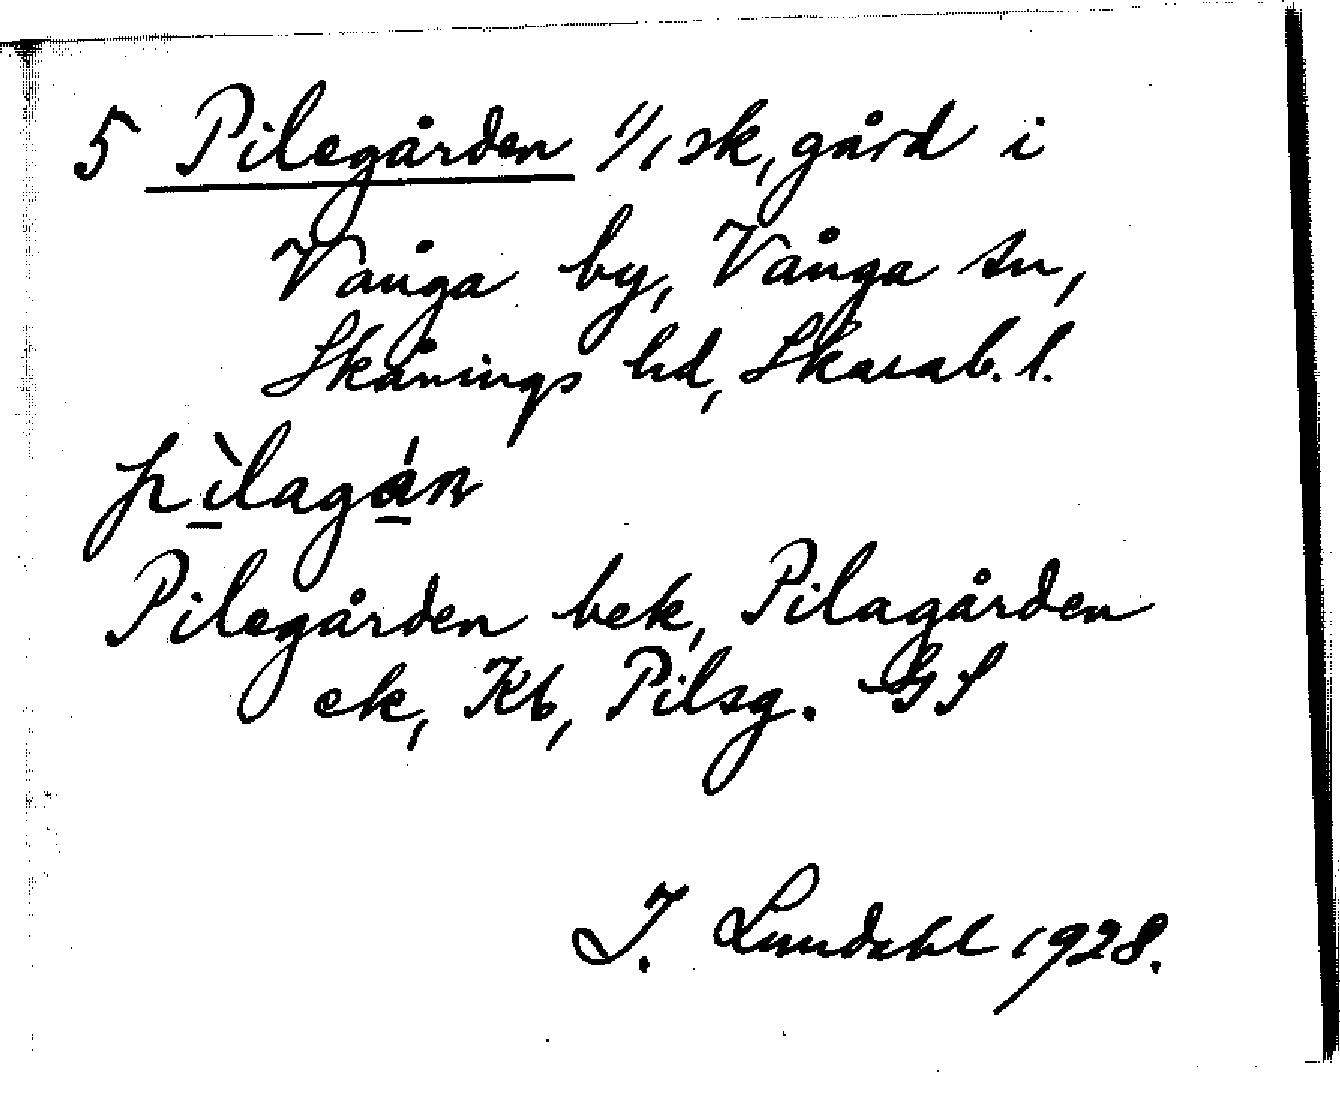 5 Pilegården 1/1 sk, gård i
Vånga by, Vånga sn,
Skånings hd, Skarab. l.
pìlagán
Pilegården bek, Pilagården
ek, Kb, Pilsg. GS
I. Lundahl 1928.